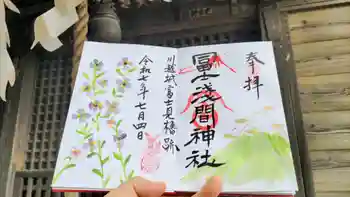 奉拝
冨士浅間神社
川越富士見櫓跡
令和七年七月四日